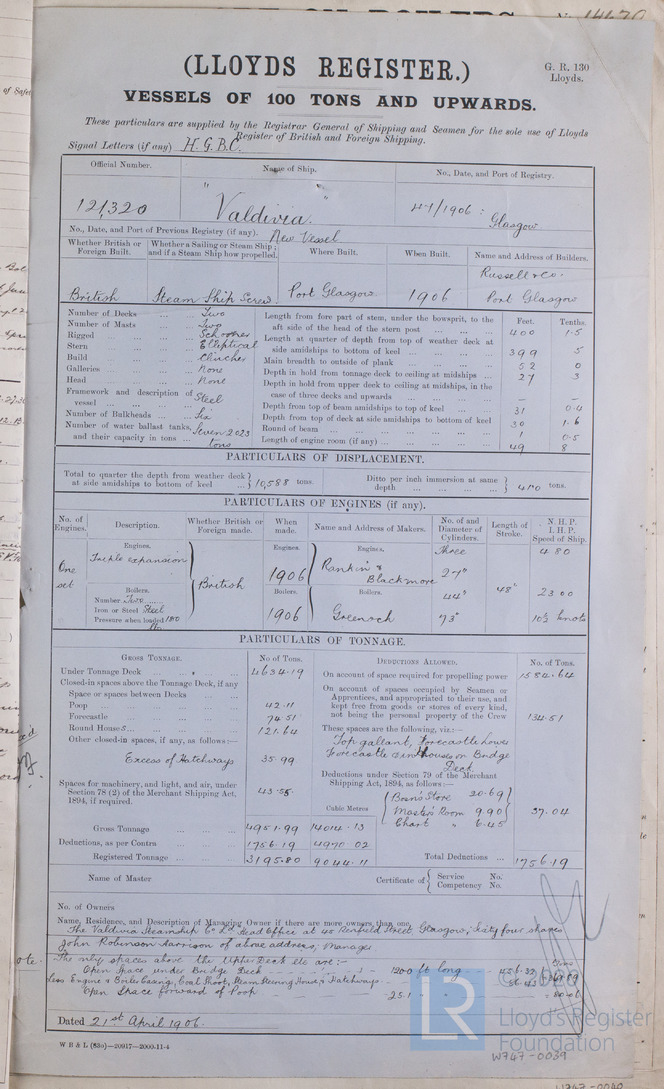 (LLOYDS REGISTER.)
G. R. 130
Lloyds.
VESSELS OF 100 TONS AND UPWARDS.
These particulars are supplied by the Registrar General of Shipping and Seamen for the sole use of Lloyds
Register of British and Foreign Shipping.
Signal Letters (if any) H.G.B.C.
Official Number. Name of Ship. No., Date, and Port of Registry.
121,320 "Valdivia." 41/1906: Glasgow
No., Date, and Port of Previous Registry (if any). New Vessel
Whether British or Foreign Built. Whether a Sailing or Steam Ship; and if a Steam Ship how propelled. Where Built. When Built. Name and Address of Builders.
British Steam Ship Screw. Port Glasgow 1906 Russell & Co. Port Glasgow
Number of Decks ... Two
Number of Masts ... Two
Rigged ... Schooner
Stern ... Elliptical
Build ... Clincher
Galleries ... None
Head ... None
Framework and description of vessel ... Steel
Number of Bulkheads ... Six
Number of water ballast tanks, and their capacity in tons ... Seven 2023 tons
Feet. Tenths.
Length from fore part of stem, under the bowsprit, to the aft side of the head of the stern post ... 400 1.5
Length at quarter of depth from top of weather deck at side amidships to bottom of keel ... 399 5
Main breadth to outside of plank ... 52 0
Depth in hold from tonnage deck to ceiling at midships ... 27 3
Depth in hold from upper deck to ceiling at midships, in the case of three decks and upwards ... — —
Depth from top of beam amidships to top of keel ... 31 0.4
Depth from top of deck at side amidships to bottom of keel 30 1.6
Round of beam ... 1 0.5
Length of engine room (if any) ... 49 8
PARTICULARS OF DISPLACEMENT.
Total to quarter the depth from weather deck at side amidships to bottom of keel ... 10,588 tons. Ditto per inch immersion at same depth ... tons.
PARTICULARS OF ENGINES (if any).
No. of Engines. Description. Whether British or Foreign made. When made. Name and Address of Makers. No. of and Diameter of Cylinders. Length of Stroke. N. H. P. I. H. P. Speed of Ship.
Engines. Engines. Engines. Three 480
One set Triple expansion British 1906 Rankin & Blackmore 27" 48"
Boilers. Boilers. Boilers. 44" 2300
Number Two
Iron or Steel Steel
Pressure when loaded 180 lb
1906 Greenock 73" 10½ knots
PARTICULARS OF TONNAGE.
GROSS TONNAGE. No of Tons. DEDUCTIONS ALLOWED. No. of Tons.
Under Tonnage Deck ... 4634.19
Closed-in spaces above the Tonnage Deck, if any
Space or spaces between Decks
Poop ... 42.11
Forecastle ... 74.51
Round Houses ... 121.64
Other closed-in spaces, if any, as follows:—
Excess of Hatchways 35.99
Spaces for machinery, and light, and air, under Section 78 (2) of the Merchant Shipping Act, 1894, if required. 43.55
On account of space required for propelling power 1584.64
On account of spaces occupied by Seamen or Apprentices, and appropriated to their use, and kept free from goods or stores of every kind, not being the personal property of the Crew 134.51
These spaces are the following, viz.:—
Top gallant, Forecastle houses
Forecastle and houses on Bridge Deck
Deductions under Section 79 of the Merchant Shipping Act, 1894, as follows:—
Bosn's Store 20.69
Master's Room 9.90
Chart " 6.45
37.04
Cubic Metres
Gross Tonnage ... 4951.99 14014.13
Deductions, as per Contra ... 1756.19 4970.02
Registered Tonnage ... 3195.80 9044.11
Total Deductions ... 1756.19
Name of Master
Certificate of { Service No. Competency No.
No. of Owners
Name, Residence, and Description of Managing Owner if there are more owners than one,
The Valdivia Steamship Co Ld Head Office at 45 Renfield Street Glasgow; Sixty four shares
John Robinson Harrison of above address, Manager
Note:- The only spaces above the Upper Deck etc are:-
Open Space under Bridge Deck 120.0 ft long
Less Engine & Boiler Casing, Coal Shoot, Steam Steering House, & Hatchways
Open Space forward of Poop 25.1
Dated 21st April 1906.
W B & L (53o)—20917—2000-11-4
LR
Lloyd's Register
Foundation
W747-0039